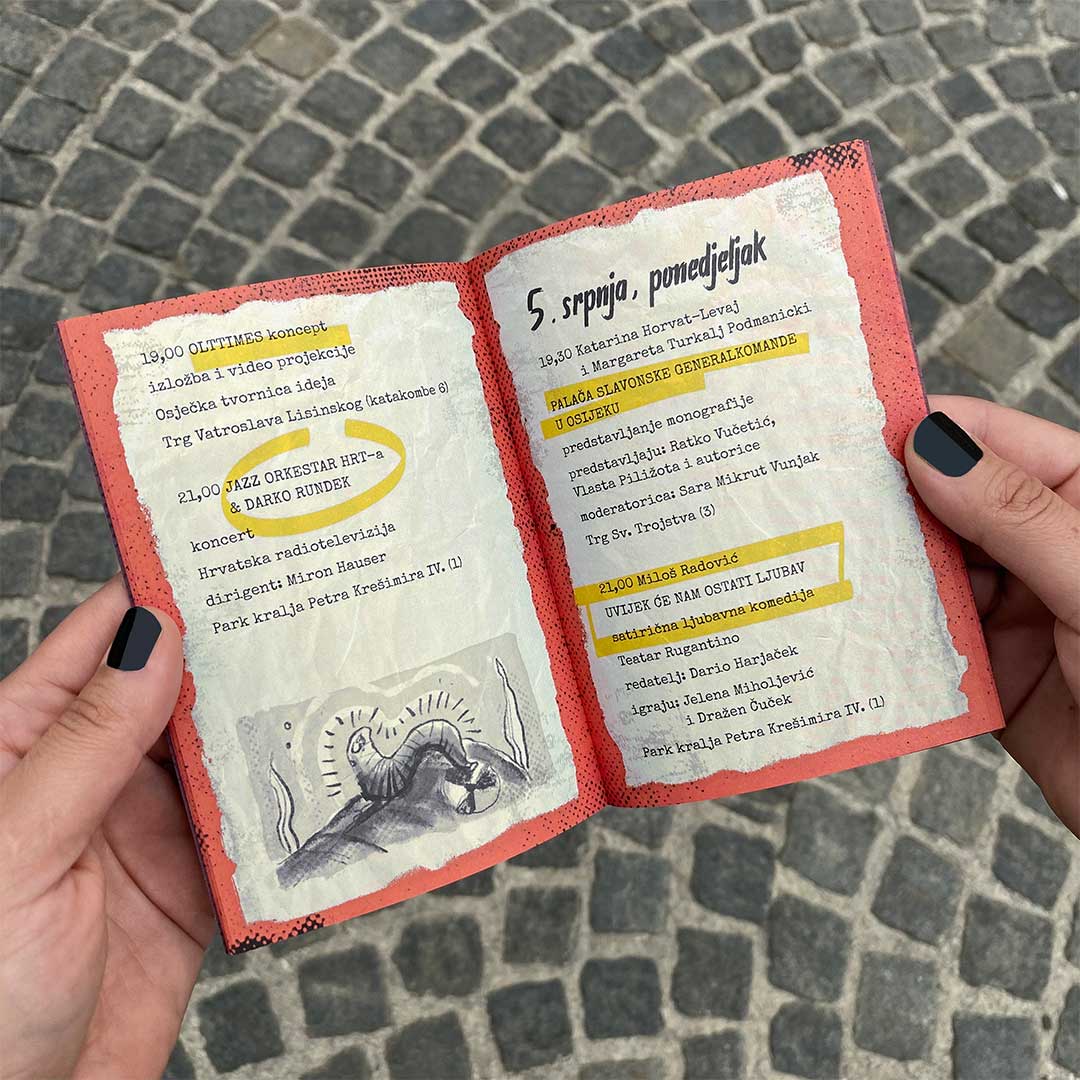 19,00 OLTTIMES koncept
izložba i video projekcije
Osječka tvornica ideja
Trg Vatroslava Lisinskog (katakombe 6)
21,00 JAZZ ORKESTAR HRT-a
& DARKO RUNDEK
koncert
Hrvatska radiotelevizija
dirigent: Miron Hauser
Park kralja Petra Krešimira IV. (1)
5. srpnja, ponedjeljak
19,30 Katarina Horvat-Levaj
i Margareta Turkalj Podmanicki
PALAČA SLAVONSKE GENERALKOMANDE
U OSIJEKU
predstavljanje monografije
predstavljaju: Ratko Vučetić,
Vlasta Piližota i autorice
moderatorica: Sara Mikrut Vunjak
Trg Sv. Trojstva (3)
21,00 Miloš Radović
UVIJEK ĆE NAM OSTATI LJUBAV
satirična ljubavna komedija
Teatar Rugantino
redatelj: Dario Harjaček
igraju: Jelena Miholjević
i Dražen Čuček
Park kralja Petra Krešimira IV. (1)